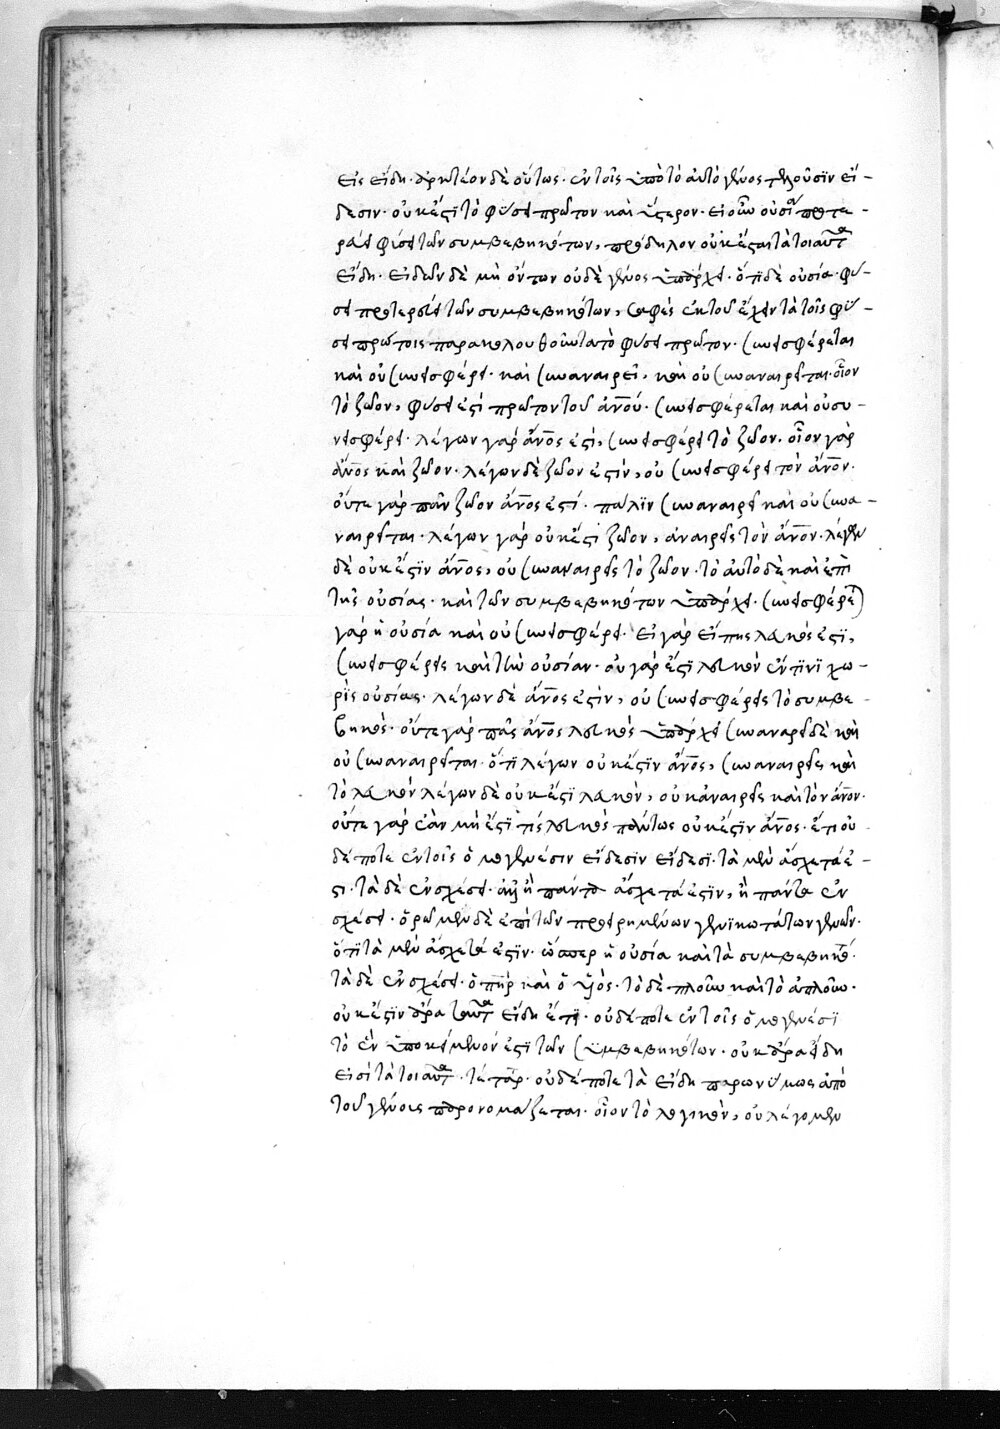 εἰς εἴδη· ἀρκτέον δὲ οὕτως· ἐν τοῖς ὑπὸ τὸ αὐτὸ γένος τελοῦσϊν εἴ-
δεσιν· οὐκ ἔστϊ τὸ φύσει πρῶτον καὶ ὕστερον· εἰ οὖν οὐσία προτέ-
ρα ἐστὶ φύσει τῶν συμβεβηκότων, πρόδηλον οὐκ ἔσται τὰ τοιαῦτα
εἴδη· εἰδῶν δὲ μὴ ὄντων οὐδὲ γένος ὑπάρχει· ὅτι δὲ οὐσία φύ-
σει προτερεύει τῶν συμβεβηκότων, σαφὲς ἐκ τοῦ ἔχειν τὰ τοῖς φύ-
σει πρώτοις παρακολουθοῦντα τὸ φύσει πρῶτον· συνεισφέρεται
καὶ οὐ συνεισφέρει· καὶ συναναιρεῖ, καὶ οὐ συναναιρεῖται· οἷον
τὸ ζῶον, φύσει ἐστὶ πρῶτον τοῦ ἀνου· συνεισφέρεται καὶ οὐ συ-
νεισφέρει· λέγων γὰρ ἄνος ἐστὶ, συνεισφέρει τὸ ζῶον· οἷον γὰρ
ἄνος καὶ ζῶον· λέγων δὲ ζῶον ἐστὶν, οὐ συνεισφέρει τὸν ἄνον·
οὔτε γὰρ πᾶν ζῶον ἄνος ἐστί· πάλϊν συναναιρεῖ καὶ οὐ συνα-
ναιρεῖται· λέγων γὰρ οὐκ ἔστι ζῶον, ἀναιρεῖς τὸν ἄνον· λέγων
δὲ οὐκ ἔστϊν ἄνος, οὐ συναναιρεῖς τὸ ζῶον· τὸ αὐτὸ δὲ καὶ ἐπὶ
τῆς οὐσίας· καὶ τῶν συμβεβηκότων ὑπάρχει· συνεισφέρεται
γὰρ ἡ οὐσία καὶ οὐ συνεισφέρει· εἰ γὰρ εἴπης λευκός ἐστϊ,
συνεισφέρεις καὶ τὴν οὐσίαν· οὐ γὰρ ἔστϊ λευκὸν ἔν τϊνϊ χω-
ρὶς οὐσίας· λέγων δὲ ἄνος ἐστὶν, οὐ συνεισφέρεις τὸ συμβε-
βηκός· οὔτε γὰρ πᾶς ἄνος λευκὸς ὑπάρχει συναναιρεῖ δὲ καὶ
οὐ συναναιρεῖται· ὅτϊ λέγων οὐκ ἔστϊν ἄνος, συναναιρεῖς καὶ
τὸ λευκόν λέγων δὲ οὐκ ἔστϊ λευκὸν, οὐκ ἀναιρεῖς καὶ τὸν ἄνον·
οὔτε γὰρ ἐὰν μὴ ἔστϊ τίς λευκὸς πάντως οὐκ ἔστϊν ἄνος· ἔτι οὐ-
δέποτε ἐν τοῖς ὁμογενέσιν εἴδεσϊν εἴδεσϊ· τὰ μὲν ἄσχετά ἐ-
στι· τὰ δὲ ἐν σχέσει· ἀλλ' ἢ πάντα ἄσχετά ἐστϊν, ἢ πάντα ἐν
σχέσει· ὁρῶμεν δὲ ἐπὶ τῶν προειρημένων γενϊκωτάτων γενῶν·
ὅτϊ τὰ μὲν ἄσχετά ἐστϊν· ὥσπερ ἡ οὐσία καὶ τὰ συμβεβηκότα·
τὰ δὲ ἐν σχέσει· ὁ πηρ καὶ ὁ υἱός· τὸ δὲ πλοῦν καὶ τὸ ἁπλοῦν·
οὐκ ἔστϊν ἄρα ταῦτα εἴδη ἔτι· οὐδέποτε ἐν τοῖς ὁμογενέσϊ
τὸ ἓν ὑποκείμενόν ἐστϊ τῶν συμβεβηκότων· οὐκ ἄρα εἴδη
εἰσὶ τὰ τοιαῦτα· τέταρ· οὐδέποτε τὰ εἴδη παρωνύμως ἀπὸ
τοῦ γένους παρονομάζεται· οἷον τὸ λογικὸν, οὐ λέγομεν